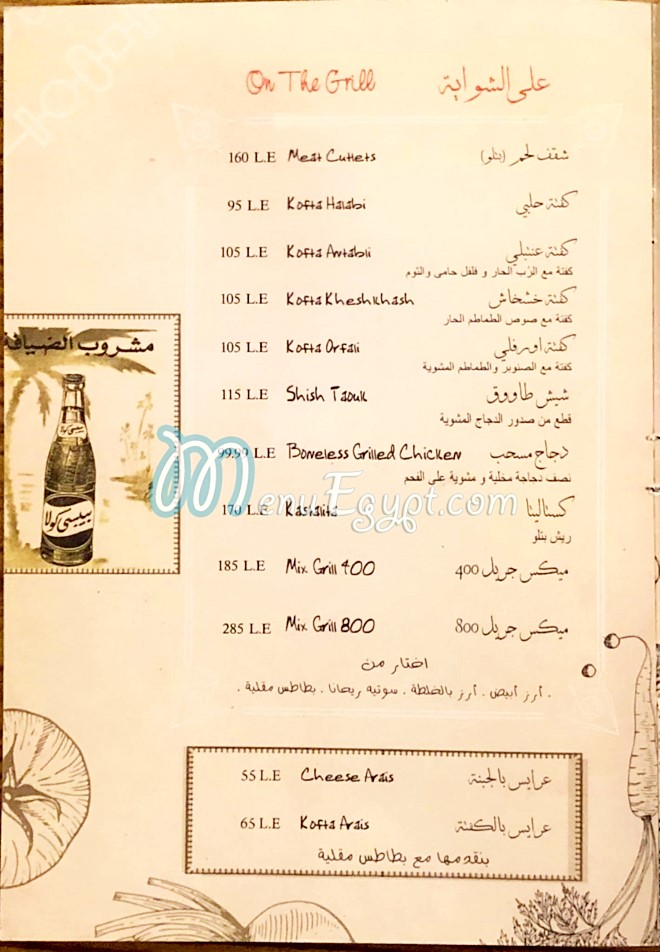 On The Grill على الشواية
160 L.E Meat Cutlets شقف لحم (بتلو)
95 L.E Kofta Halabi كفتة حلبي
105 L.E Kofta Antabli كفتة عنتبلي
كفتة مع الرُب الحار و فلفل حامى والثوم
105 L.E Kofta Kheshkhash كفتة خشخاش
كفتة مع صوص الطماطم الحار
105 L.E Kofta Orfali كفتة اورفلي
كفتة مع الصنوبر والطماطم المشوية
مشروب الضيافة
115 L.E Shish Taouk شيش طاووق
قطع من صدور الدجاج المشوية
بيبسى كولا
99.99 L.E Boneless Grilled Chicken دجاج مسحب
نصف دجاجة مخلية و مشوية على الفحم
MenuEgypt.com
170 L.E Kastalita كستاليتا
ريش بتلو
بيبسى كولا
185 L.E Mix Grill 400 ميكس جريل 400
285 L.E Mix Grill 800 ميكس جريل 800
اختار من
. أرز أبيض . أرز بالخلطة . سوتيه ريحانا . بطاطس مقلية .
55 L.E Cheese Arais عرايس بالجبنة
65 L.E Kofta Arais عرايس بالكفتة
بنقدمها مع بطاطس مقلية